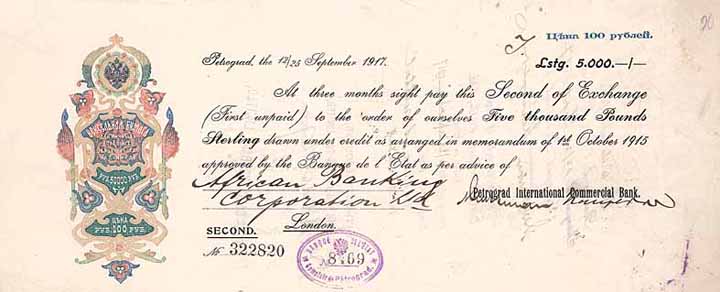 Цѣна 100 рублей.
Petrograd, the 12/25 September 1917.
Lstg. 5.000.—/—
At three months sight pay this Second of Exchange
(First unpaid) to the order of ourselves Five thousand Pounds
Sterling drawn under credit as arranged in memorandum of 1st October 1915
approved by the Banque de l'Etat as per advice of
African Banking
Corporation Ltd
Petrograd International Commercial Bank.
London.
SECOND.
№ 322820
BANQUE
8769
Petrograd.
РУБ. 50000 РУБ.
ЦѢНА
РУБ. 100 РУБ.